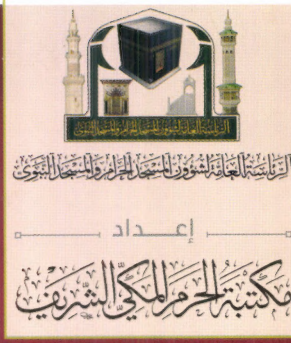 الرئاسة العامة لشؤون المسجد الحرام والمسجد النبوي
الرئاسة العامة لشؤون المسجد الحرام والمسجد النبوي
إعـــداد
مكتبة الحرم المكي الشريف